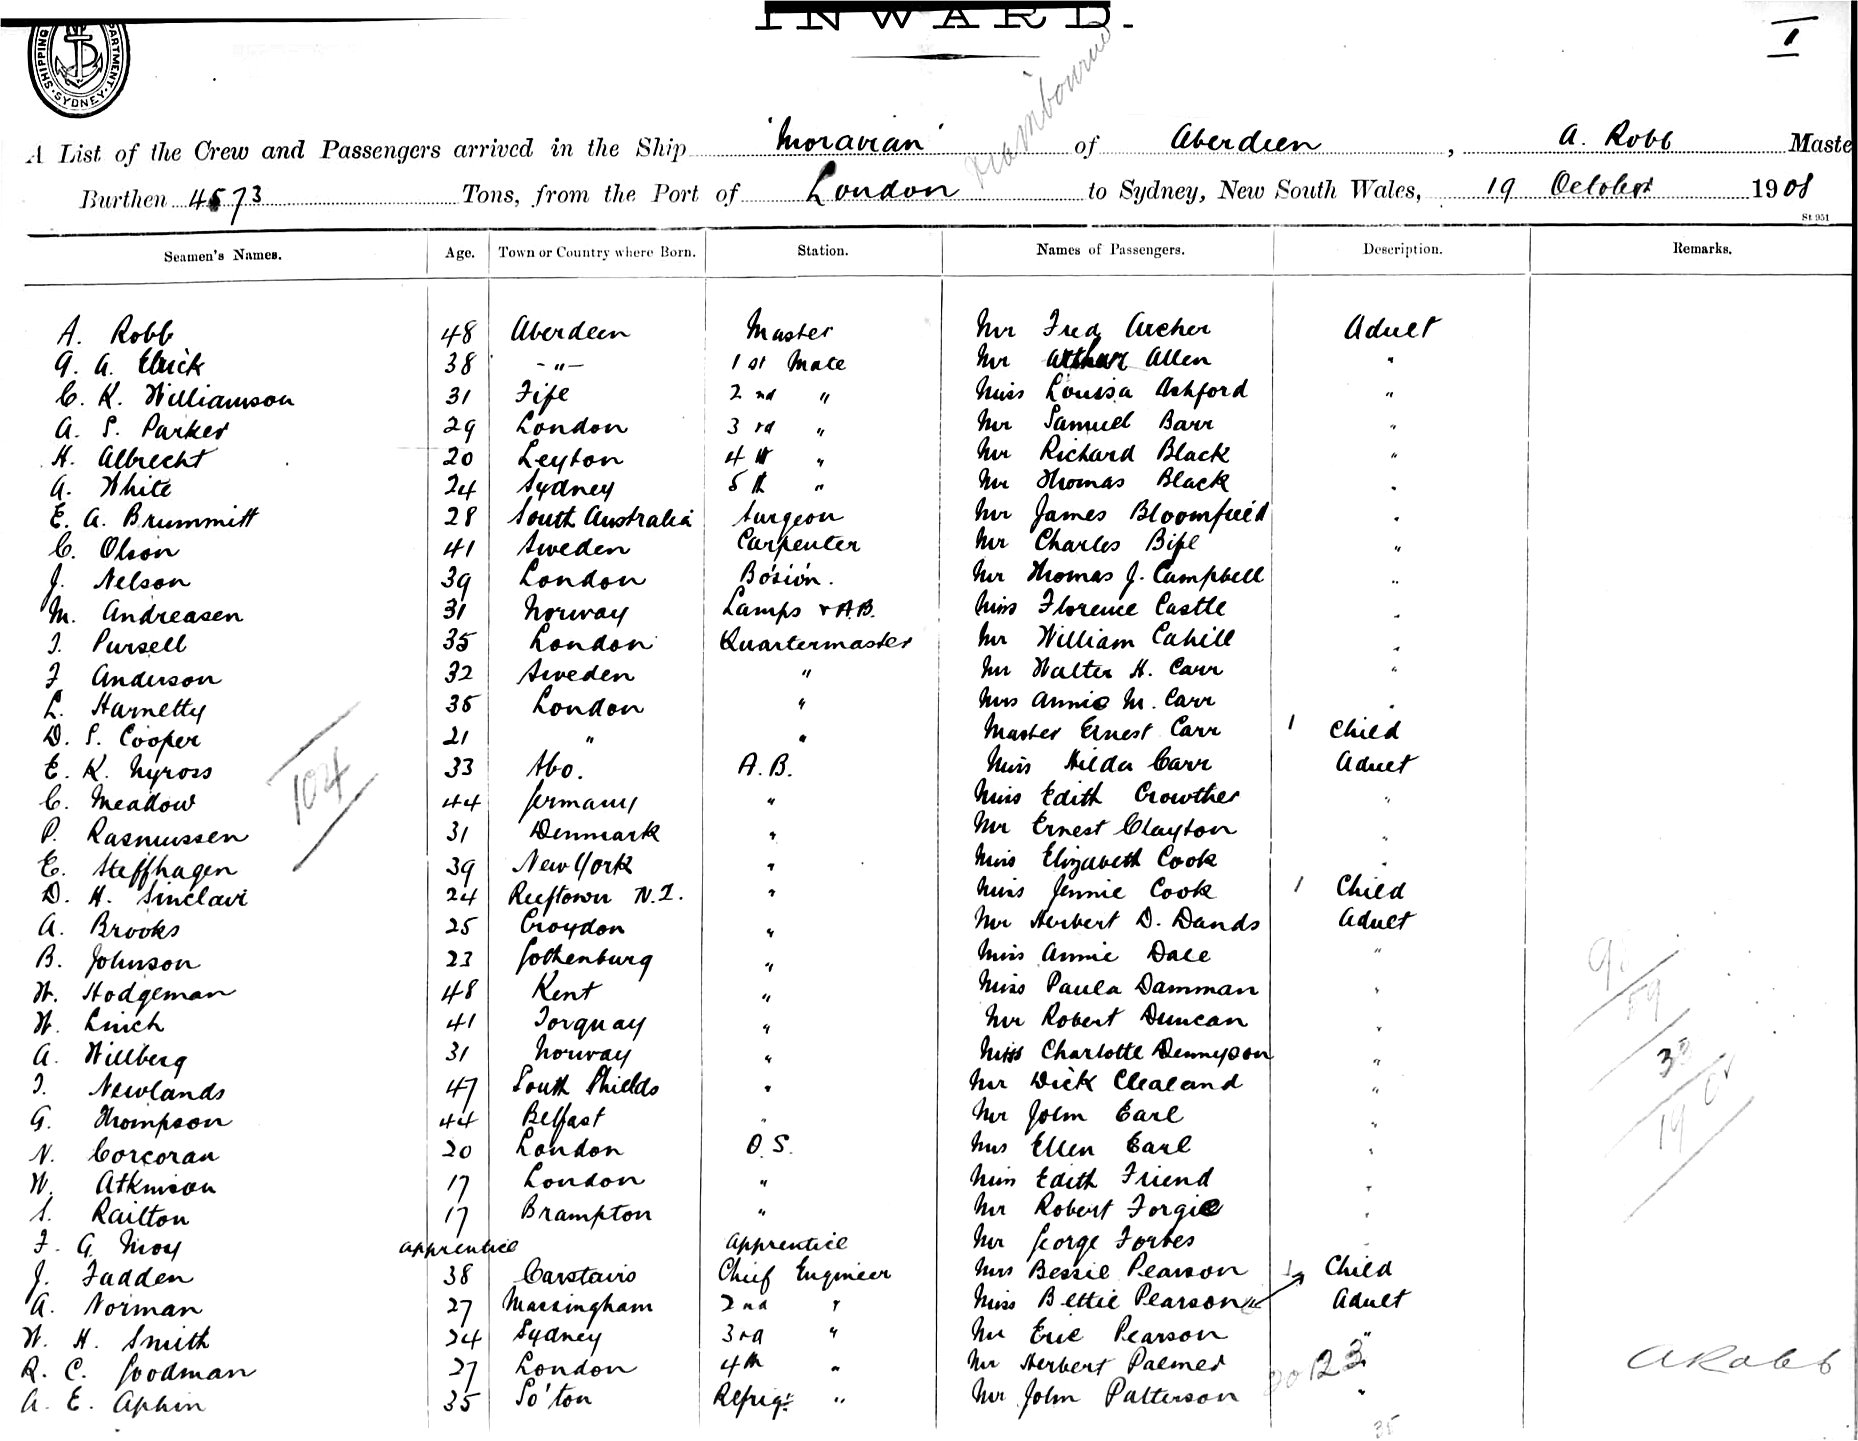 INWARD.
1
SHIPPING DEPARTMENT. SYDNEY.
A List of the Crew and Passengers arrived in the Ship "Moravian" of Aberdeen, A. Robb Maste
Burthen 4573 Tons, from the Port of London to Sydney, New South Wales, 19 October 1908
St 951
Seamen's Names. Age. Town or Country where Born. Station. Names of Passengers. Description. Remarks.
A. Robb 48 Aberdeen Master Mr Fred Archer Adult
G. A. 38 -"- 1st Mate Mr Arthur Allen "
C. K. Williamson 31 Fife 2nd " Miss Louisa Ashford "
A. S. Parker 29 London 3rd " Mr Samuel Barr "
H. Albrecht 20 Leyton 4th " Mr Richard Black "
A. White 24 Sydney 5th " Mr Thomas Black "
E. A. Brummitt 28 South Australia Surgeon Mr James Bloomfield "
C. Olson 41 Sweden Carpenter Mr Charles "
J. Nelson 39 London Bo's'n. Mr Thomas J. Campbell "
M. Andreasen 31 Norway Lamps & A.B. Miss Florence Castle "
T. Pursell 35 London Quartermaster Mr William Cahill "
F Anderson 32 Sweden " Mr Walter H. Carr "
L. Harnetty 35 London " Mrs Annie M. Carr "
D. S. Cooper 21 " " Master Ernest Carr 1 Child
E. K. Nyross 33 Abo. A.B. Miss Hilda Carr Adult
C. Meadow 44 Germany " Miss Edith Crowther "
P. Rasmussen 31 Denmark " Mr Ernest Clayton "
E. Steffhagen 39 New York " Miss Elizabeth Cook "
D. H. Sinclair 24 " Miss Jennie Cook 1 Child
A. Brooks 25 Croydon " Mr Herbert D. Dands Adult
B. Johnson 23 Gothenburg " Miss Annie Dale "
W. Hodgeman 48 Kent " Miss Paula Damman "
W. Linch 41 Torquay " Mr Robert Duncan "
A. Willberg 31 Norway " Miss Charlotte Dennyson "
T. Newlands 47 South Shields " Mr Dick Clealand "
G. Thompson 44 Belfast " Mr John Earl "
N. Corcoran 20 London O.S. Mrs Ellen Earl "
W. Atkinson 17 London " Miss Edith Friend "
S. Railton 17 Brampton " Mr Robert Forgie "
F. G. Moy Apprentice Apprentice Mr George Forbes
J. Fadden 38 Carstairs Chief Engineer Mrs Bessie Pearson 1 Child
A. Norman 27 Massingham 2nd " Miss Bettie Pearson Adult
W. H. Smith 24 Sydney 3rd " Mr Eric Pearson "
R. C. Goodman 27 London 4th " Mr Herbert Palmer "
A. E. Aphin 35 So'ton Refrig. " Mr John Patterson "
104
A Robb
35